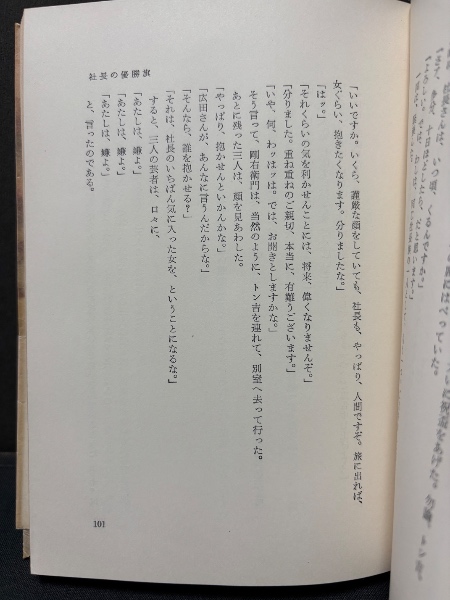 社長の優勝旗
「いいですか。いくら、謹厳な顔をしていても、社長も、やっぱり、人間ですぞ。旅に出れば、
女ぐらい、抱きたくなります。分りましたな。」
「はッ。」
「それくらいの気を利かせんことには、将来、偉くなりませんぞ。」
「分りました。重ね重ねのご親切、本当に、有難うございます。」
「いや、何、わッはッは。では、お開きとしますかな。」
そう言って、剛右衛門は、当然のように、トン吉を連れて、別室へ去って行った。
あとに残った三人は、顔を見あわした。
「やっぱり、抱かせんといかんかな。」
「広田さんが、あんなに言うんだからな。」
「そんなら、誰を抱かせる？」
「それは、社長のいちばん気に入った女を、ということになるな。」
すると、三人の芸者は、口々に、
「あたしは、嫌よ。」
「あたしは、嫌よ。」
「あたしは、嫌よ。」
と、言ったのである。
101